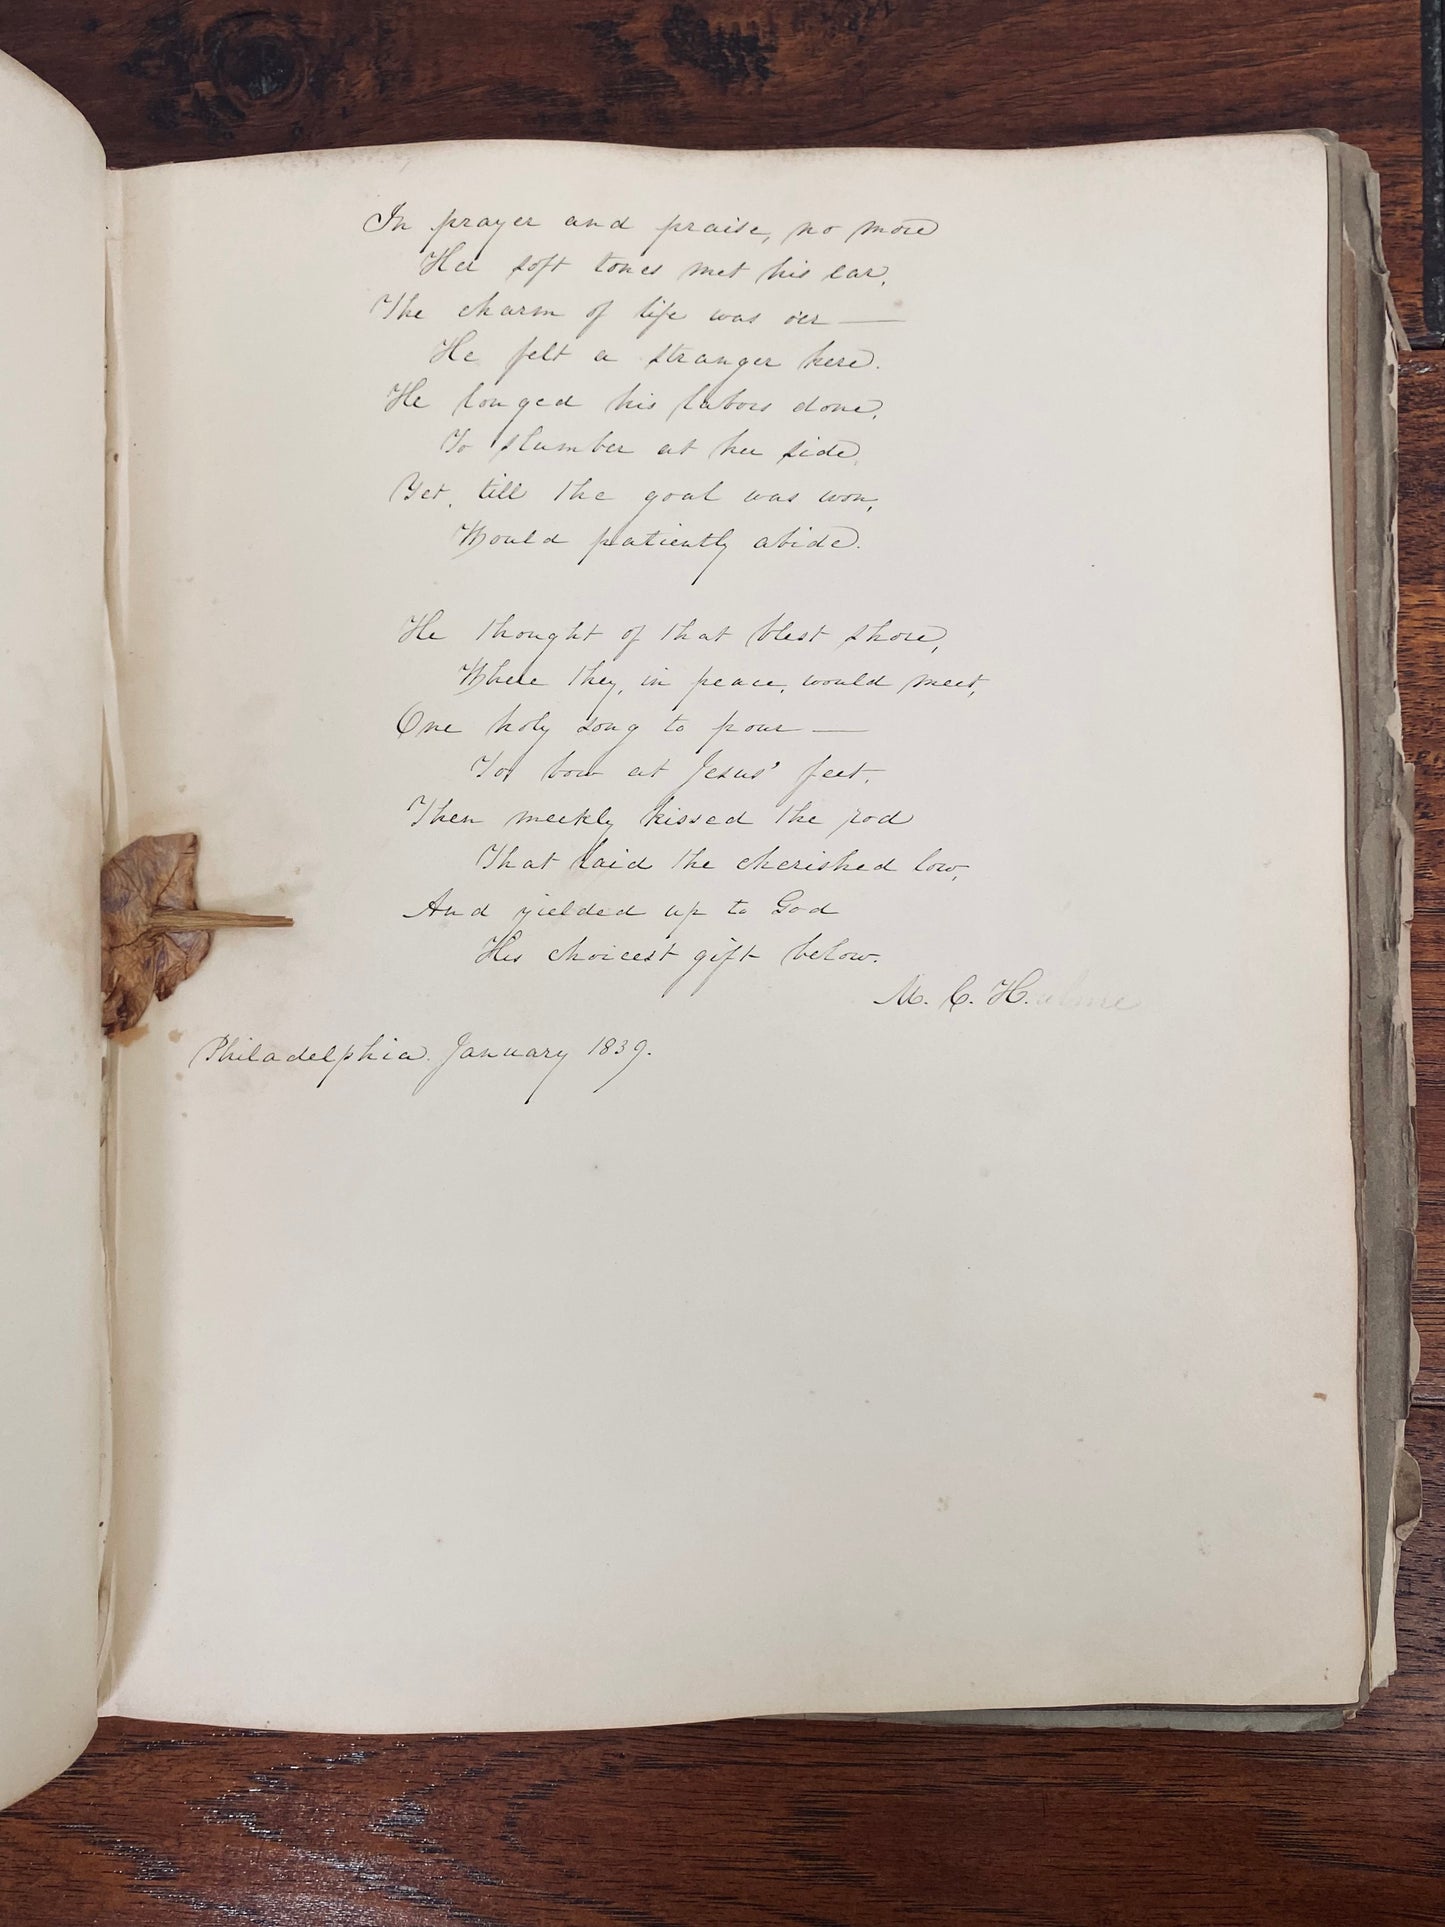 In prayer and praise, no more
Her soft tones met his ear,
The charm of life was o'er —
He felt a stranger here.
He longed his labors done,
To slumber at her side,
Yet, till the goal was won,
Would patiently abide.
He thought of that blest shore,
Where they, in peace, would meet,
One holy song to pour —
To bow at Jesus' feet,
Then meekly kissed the rod
That laid the cherished low,
And yielded up to God
His choicest gift below.
M. C. H.
Philadelphia. January 1839.